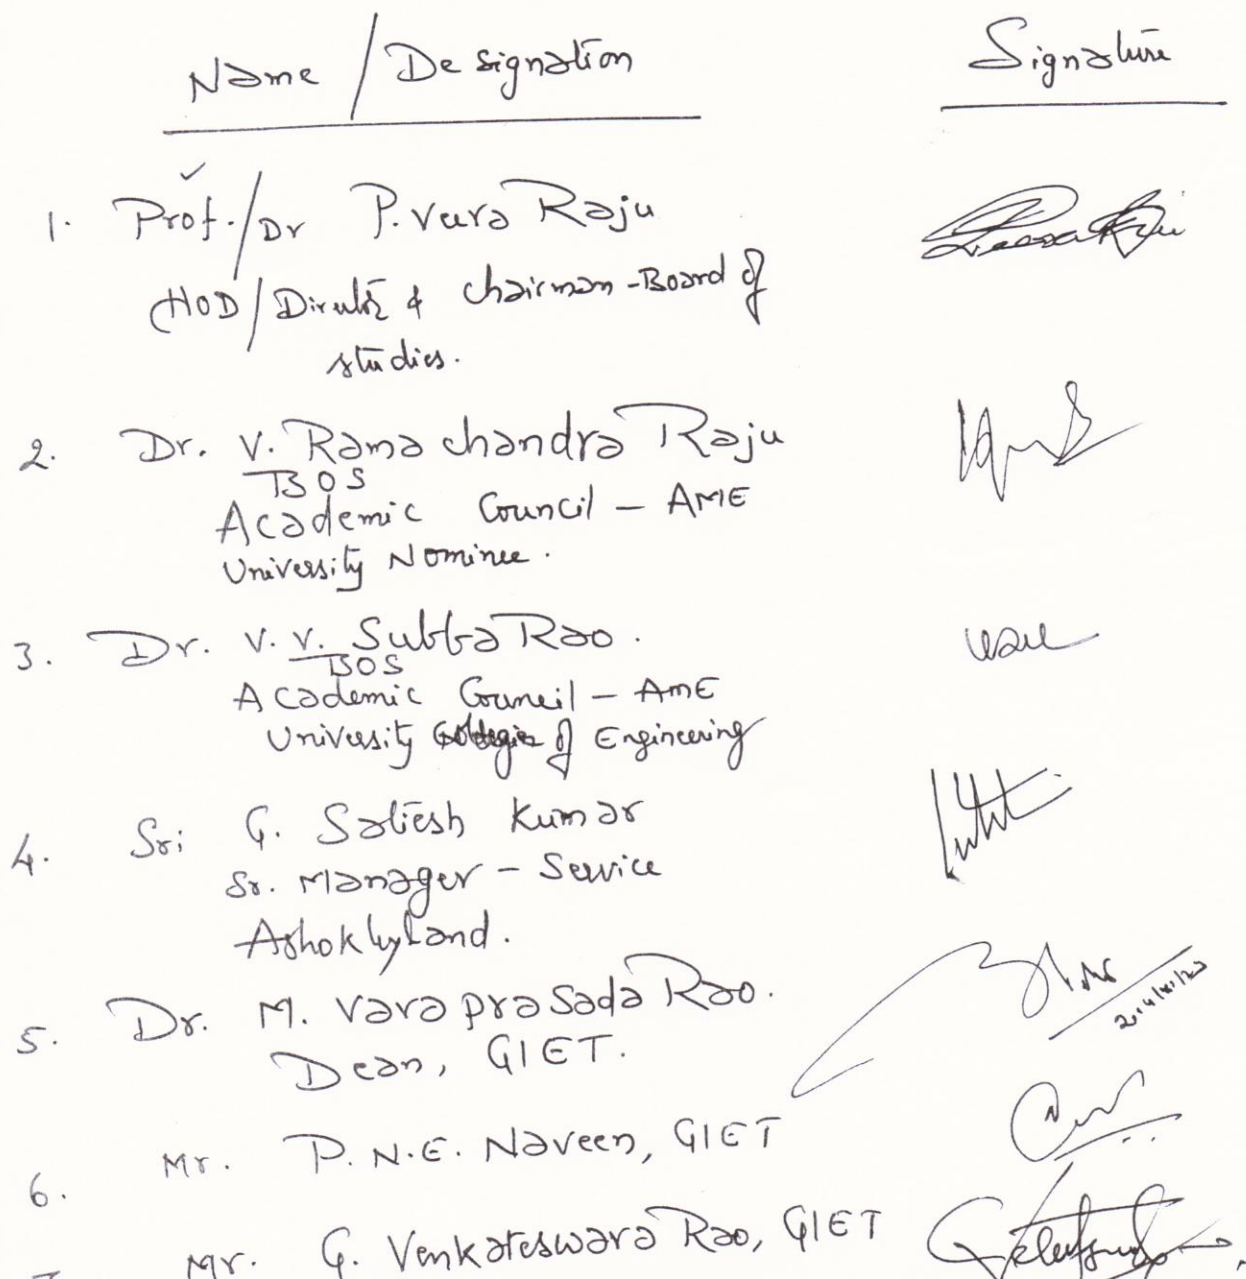 Name / Designation Signature
1. Prof./Dr P. Veera Raju
HOD/Director & Chairman-Board of
studies.
2. Dr. V. Rama chandra Raju
BOS
Academic Council – AME
University Nominee.
3. Dr. V. V. Subba Rao.
BOS
Academic Council – AME
University of Engineering
4. Sri G. Satiesh Kumar
Sr. Manager – Service
Ashok Leyland.
5. Dr. M. Vara prasada Rao.
Dean, GIET.
6. Mr. P. N. E. Naveen, GIET
Mr. G. Venkateswara Rao, GIET